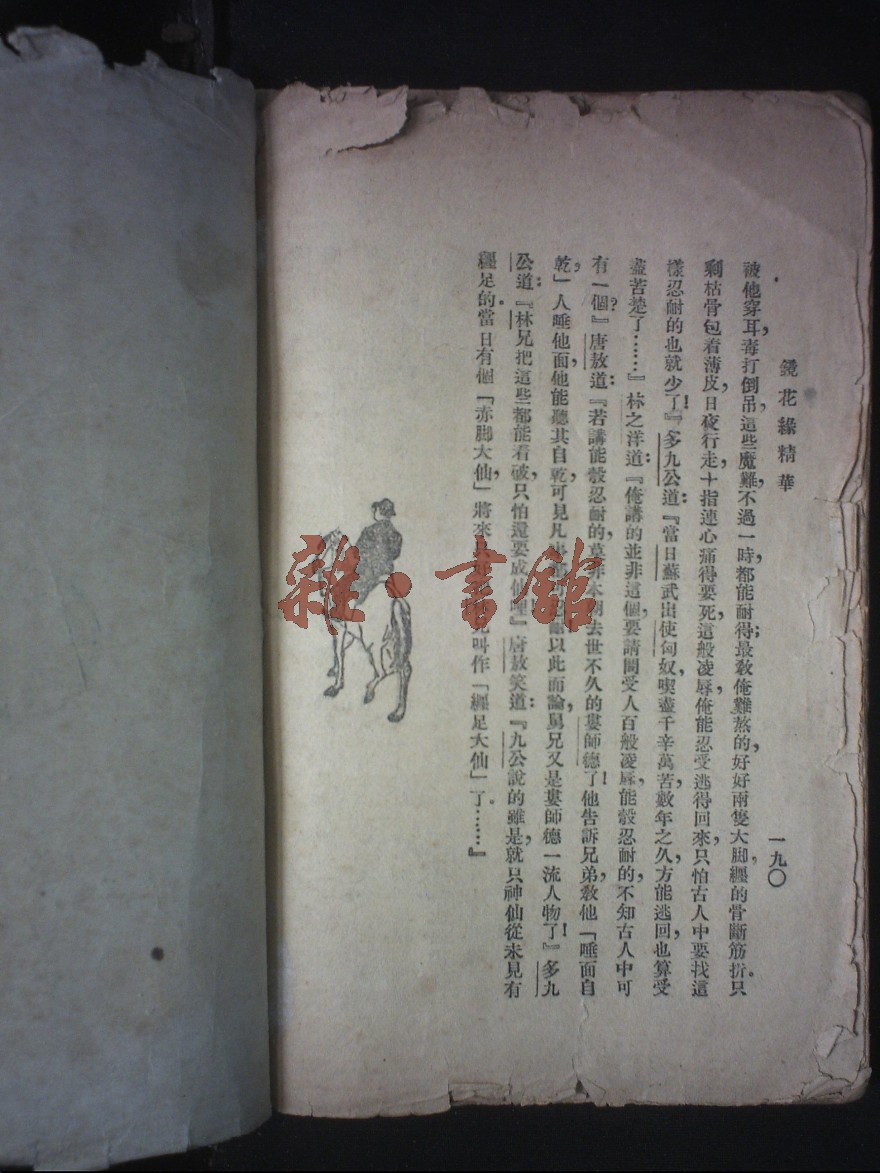 鏡花緣精華
一九〇
被他穿耳，毒打倒吊，這些魔難，不過一時，都能耐得；最敎俺難熬的，好好兩隻大脚，纏的骨斷筋折。只
剩枯骨包着薄皮，日夜行走，十指連心，痛得要死，這般凌辱，俺能忍受逃得回來，只怕古人中要找這
樣忍耐的也就少了！』多九公道：『當日蘇武出使匈奴，喫盡千辛萬苦，數年之久，方能逃回，也算受
盡苦楚了……』林之洋道：『俺講的並非這個，要請問受人百般凌辱，能彀忍耐的，不知古人中可
有一個？』唐敖道：『若講能彀忍耐的，莫非本朝去世不久的婁師德了！他告訴兄弟，敎他「唾面自
乾，」人唾他面，他能聽其自乾，可見凡事都能忍耐以此而論，舅兄又是婁師德一流人物了！』多九
公道：『林兄把這些都能看破，只怕還要成仙哩』唐敖笑道：『九公說的雖是，就只神仙從未見有
纏足的。當日有個「赤脚大仙，」將來只 叫作「纏足大仙」了。……』
雜·書館